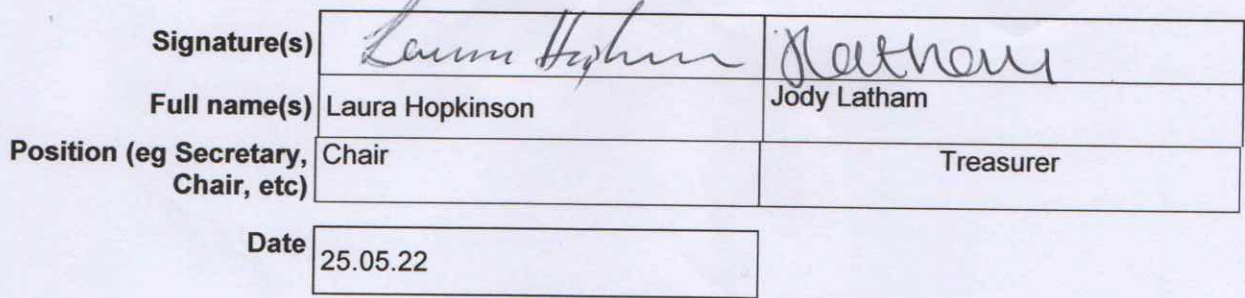 Signature(s)
Laura Hopkinson JLatham
Full name(s) Laura Hopkinson Jody Latham
Position (eg Secretary, Chair Treasurer
Chair, etc)
Date 25.05.22